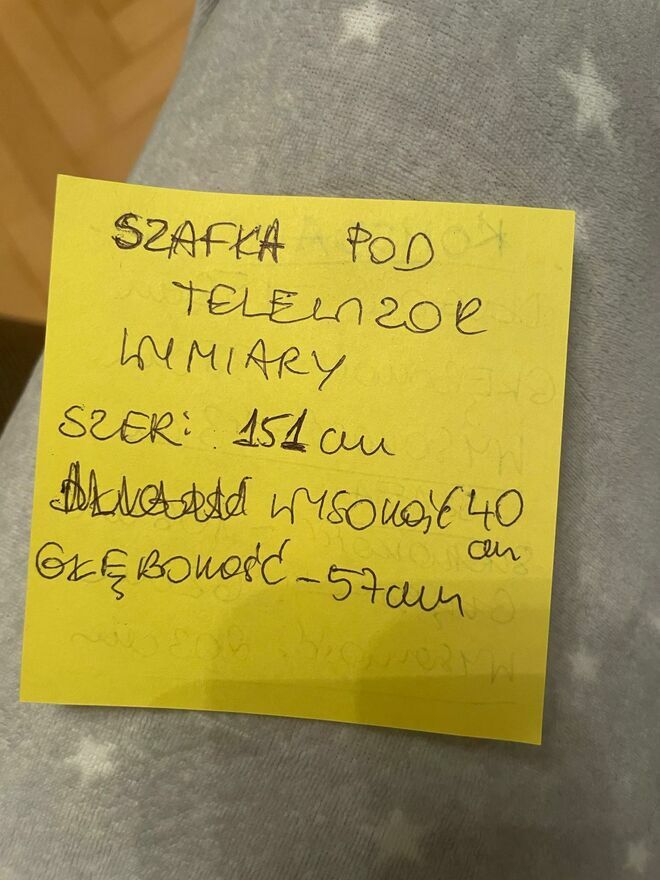 SZAFKA POD
TELEWIZOR
WYMIARY
SZER: 151 cm
WYSOKOŚĆ 40
cm
GŁĘBOKOŚĆ - 57cm